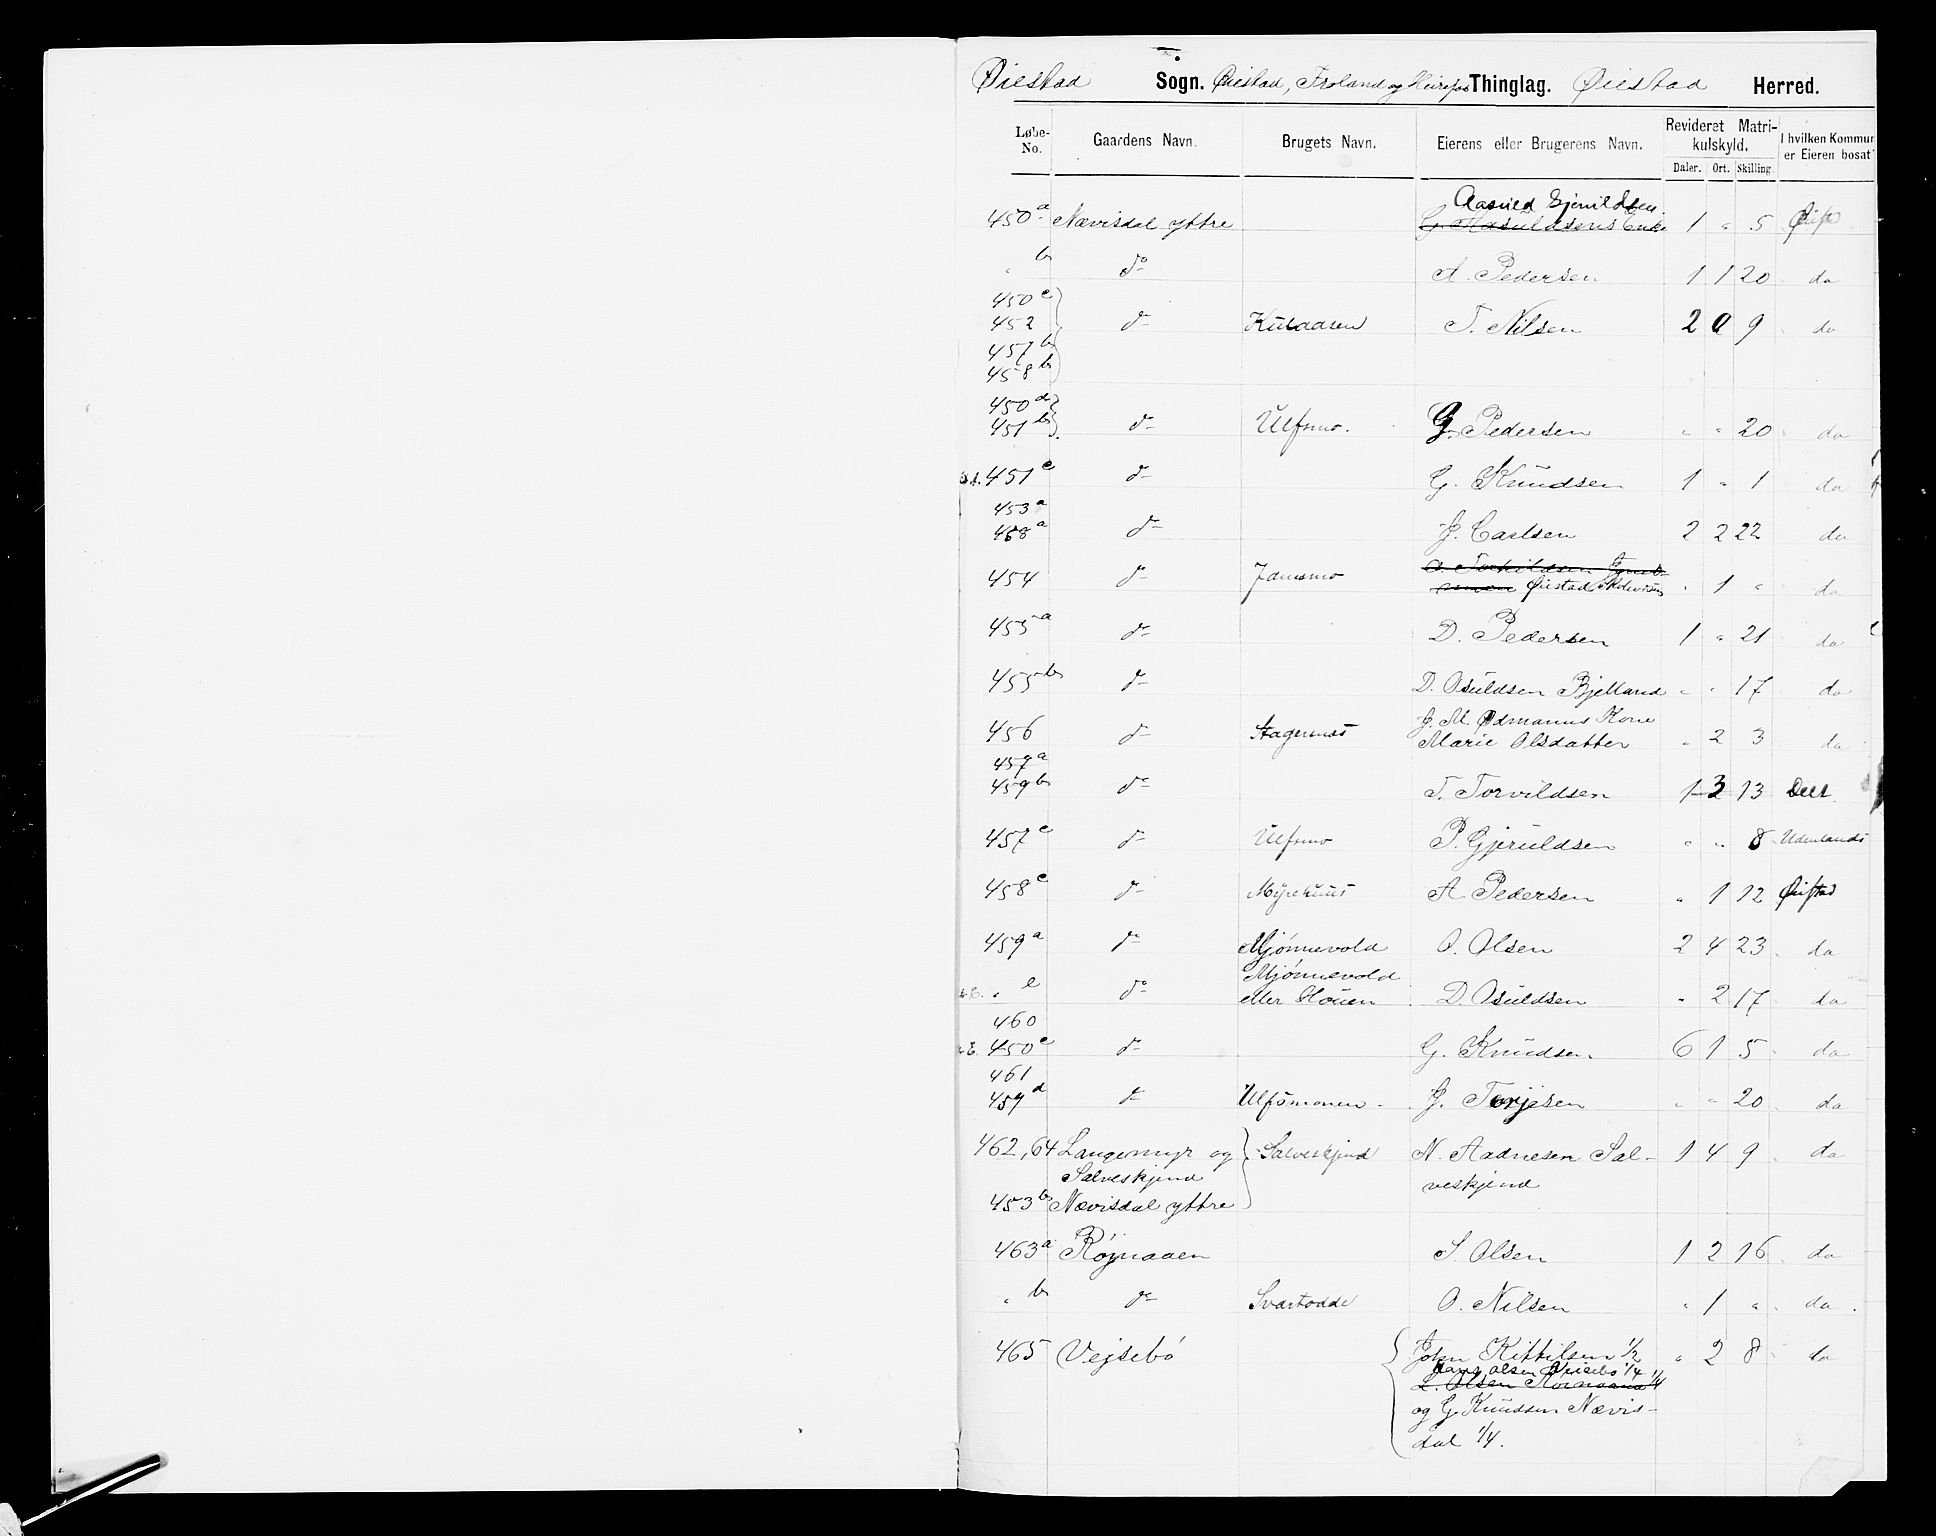 Øiestad Sogn. Øiestad, Froland og Thinglag. Øiestad Herred.
Løbe-No. Gaardens Navn. Brugets Navn. Eierens eller Brugerens Navn. Revideret Matrikulskyld. Daler. Ort. Skilling. I hvilken Kommun er Eieren bosat
Aasuld Gjeruldsen
450 a Nævisdal yttre G. Aasuldsens Enke 1 " 5
" b do A. Pedersen 1 1 20 do
450 c
452 do T. Nilsen 2 0 9 do
457 b
458 b
450 d
451 b do Ulfsmo. G. Pedersen " " 20 do
451 c do G. Knudsen 1 " 1 do
453 a
458 a do J. Carlsen 2 2 22 do
454 do Jansmo Øiestad " 1 " do
455 a do D. Pedersen 1 " 21 do
455 b do D. Osuldsen Bjelland " " 17 do
J. M. Ødmanns Kone
456 do Marie Olsdatter " 2 3 do
457 a
459 b do T. Torvildsen 1 3 13
457 c do Ulfsmo P. Gjeruldsen " " 8 Udenlands
458 c do Myrehuus A. Pedersen " 1 12 Øiestad
459 a do Mjönnevold O. Olsen 2 4 23 do
Mjönnevold
" e do eller Houen D. Osuldsen " 2 17 do
460
450 e do G. Knudsen. 6 1 5 do
461
459 d do Ulfsmonen J. Torjesen " " 20 do
462, 64 Langemyr og Salveskjend N. Aadnesen Sal- 1 4 9 do
Salveskjend veskjend
453 b Nævisdal yttre
463 a Röjnaaen S. Olsen 1 2 16 do
" b do Svartodde O. Nilsen " 1 " do.
465 Vejsebö John Kittilsen 1/2 " 2 8 do
Hans Olsen Veisebö 1/4
L. Olsen 1/4
og G. Knudsen Nævis-
dal 1/4.